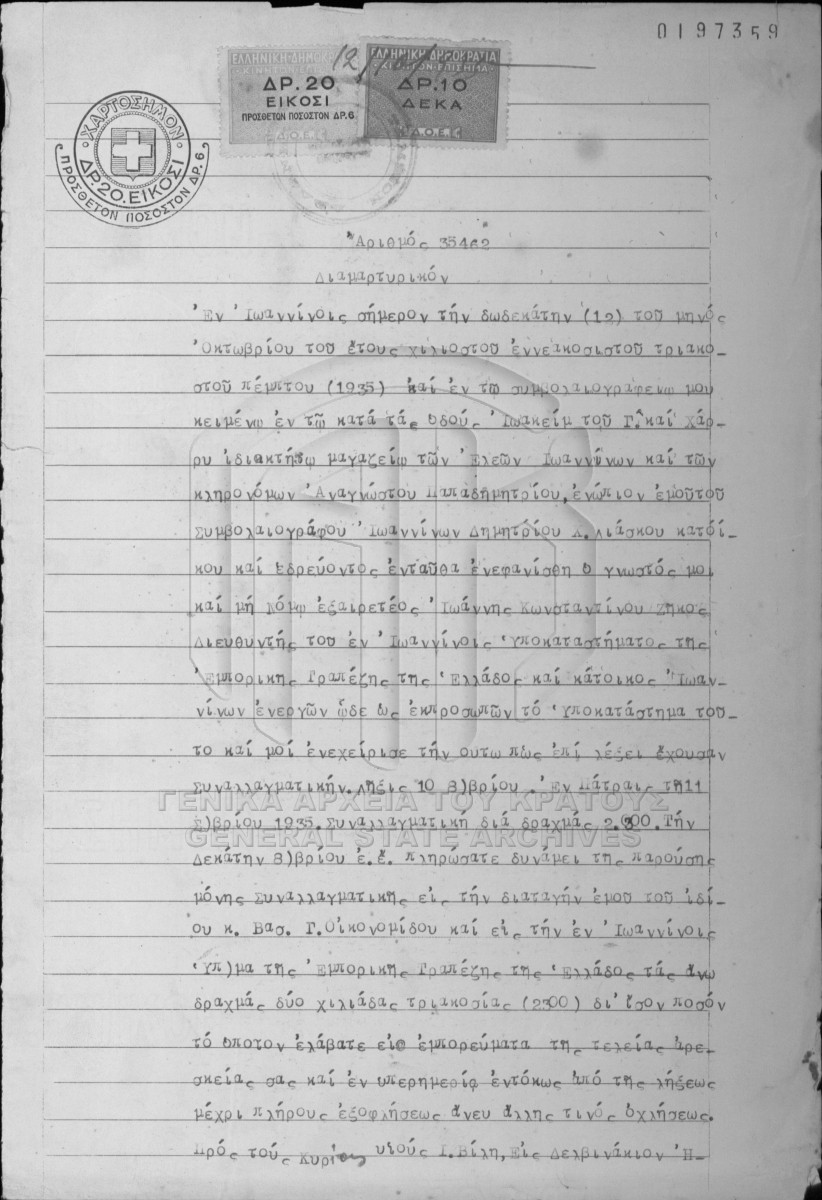 0197359
12
ΕΛΛΗΝΙΚΗ ΔΗΜΟΚΡΑΤΙΑ
ΔΡ. 20
ΕΙΚΟΣΙ
ΠΡΟΣΘΕΤΟΝ ΠΟΣΟΣΤΟΝ ΔΡ. 6
Δ.Ο.Ε.Σ
ΕΛΛΗΝΙΚΗ ΔΗΜΟΚΡΑΤΙΑ
ΧΑΡΤΟΣΗΜΟΝ ΕΠΙΣΗΜΑ
ΔΡ. 10
ΔΕΚΑ
Δ.Ο.Ε.Σ
ΧΑΡΤΟΣΗΜΟΝ
ΔΡ. 20. ΕΙΚΟΣΙ
ΠΡΟΣΘΕΤΟΝ ΠΟΣΟΣΤΟΝ ΔΡ. 6.
Ἀριθμός 35462
Διαμαρτυρικόν
Ἐν Ἰωαννίνοις σήμερον τήν δωδεκάτην (12) τοῦ μηνός
Ὀκτωβρίου τοῦ ἔτους χιλιοστοῦ ἐννεακοσιστοῦ τριακο-
στοῦ πέμπτου (1935) καί ἐν τῷ συμβολαιογραφείῳ μου
κειμένῳ ἐν τῷ κατά τάς ὁδούς Ἰωακείμ τοῦ Γ. καί Χάρ-
ρυ ἰδιοκτήτῳ μαγαζείῳ τῶν Ἐλεῶν Ἰωαννίνων καί τῶν
κληρονόμων Ἀναγνώστου Παπαδημητρίου, ἐνώπιον ἐμοῦ τοῦ
Συμβολαιογράφου Ἰωαννίνων Δημητρίου Χ. Λιάσκου κατοί-
κου καί ἑδρεύοντος ἐνταῦθα ἐνεφανίσθη ὁ γνωστός μοι
καί μή Νόμῳ ἐξαιρετέος Ἰωάννης Κωνσταντίνου Ζῆκος
Διευθυντής τοῦ ἐν Ἰωαννίνοις Ὑποκαταστήματος τῆς
Ἐμπορικῆς Τραπέζης τῆς Ἑλλάδος καί κάτοικος Ἰωαν-
νίνων ἐνεργῶν ὧδε ὡς ἐκπροσωπῶν τό Ὑποκατάστημα τοῦ-
το καί μοί ἐνεχείρισε τήν οὕτω πως ἐπί λέξει ἔχουσαν
Συναλλαγματικήν. Λῆξις 10 8)βρίου. Ἐν Πάτραις τῇ 11
ΓΕΝΙΚΑ ΑΡΧΕΙΑ ΤΟΥ ΚΡΑΤΟΥΣ
)βρίου 1935. Συναλλαγματική διά δραχμάς 2.300. Τήν
GENERAL STATE ARCHIVES
Δεκάτην 8)βρίου ἐ.ἔ. πληρώσατε δυνάμει τῆς παρούσης
μόνης Συναλλαγματικῆς εἰς τήν διαταγήν ἐμοῦ τοῦ ἰδί-
ου κ. Βασ. Γ. Οἰκονομίδου καί εἰς τήν ἐν Ἰωαννίνοις
Ὑπ)μα τῆς Ἐμπορικῆς Τραπέζης τῆς Ἑλλάδος τάς ἄνω
δραχμάς δύο χιλιάδας τριακοσίας (2300) δι' ἴσον ποσόν
τό ὁποῖον ἐλάβατε εἰς ἐμπορεύματα τῆς τελείας ἀρε-
σκείας σας καί ἐν ὑπερημερίᾳ ἐντόκως ἀπό τῆς λήξεως
μέχρι πλήρους ἐξοφλήσεως ἄνευ ἄλλης τινός ὀχλήσεως.
Πρός τούς Κυρίους υἱούς Ι. Βίλη, Εἰς Δελβινάκιον Ἠ-